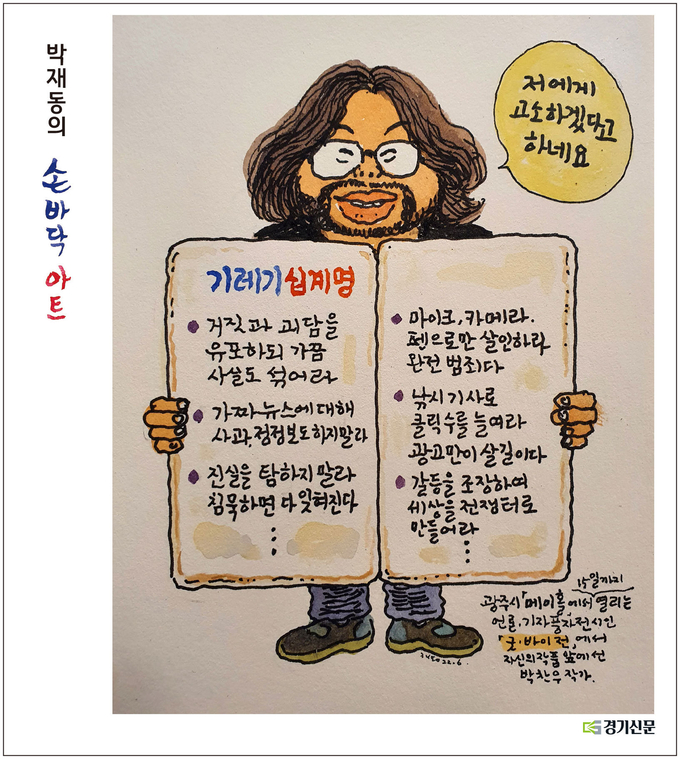 박재동의 손바닥 아트
저에게
고소하겠다고
하네요
기레기십계명
거짓과 괴담을
유포하되 가끔
사실도 섞어라
가짜뉴스에 대해
사과, 정정보도하지말라
진실을 탐하지 말라
침묵하면 다 잊혀진다
마이크, 카메라.
펜으로만 살인하라
완전 범죄다
낚시 기사로
클릭수를 늘여라
광고만이 살길이다
갈등을 조장하여
세상을 전쟁터로
만들어라
15일까지
광주시「메이홀」에서 열리는
언론.기자풍자전시인
「굿·바이전」에서
자신의 작품 앞에 선
박찬우 작가.
경기신문